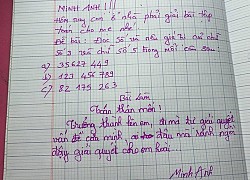 MINH ANH !!!
Hôm suy con ở nhà phải giải bài tập
toán cho mẹ nhé!
Đề bài: Đọc số và nêu giá trị của chữ
số 3 và chữ số 5 trong mỗi số sau:
a) 35 627 449
b) 123 456 789
c) 82 175 263
Bài làm
Toán thân mến!
Trưởng thành lên em, đi mà tự giải quyết
vấn đề của mình, đâu mà rảnh ngồi
đây giải quyết cho em hoài.
Minh Anh